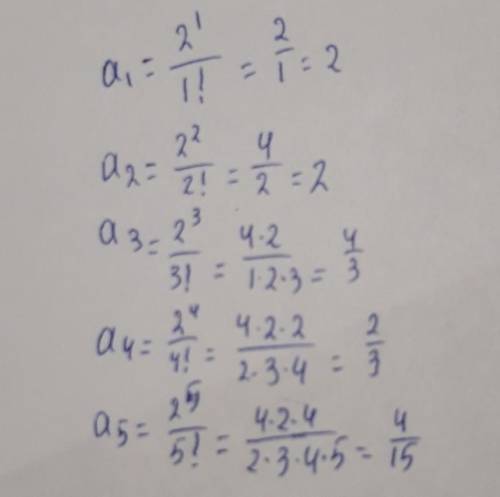 a₁ = 2¹/1! = 2/1 = 2
a₂ = 2²/2! = 4/2 = 2
a₃ = 2³/3! = 4·2/1·2·3 = 4/3
a₄ = 2⁴/4! = 4·2·2/2·3·4 = 2/3
a₅ = 2⁵/5! = 4·2·4/2·3·4·5 = 4/15